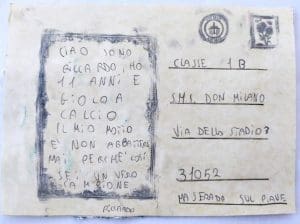 CIAO SONO
RICCARDO, HO
11 ANNI E
GIOCO A
CALCIO
IL MIO MOTTO
È NON ARBATTERTI
MAI PERCHÉ COSÌ
SEI UN VERO
CAMPIONE
RICCARDO
CLASSE 1B
SMS. DON MILANO
VIA DELLO STADIO
31052
MASERADO SUL PIAVE